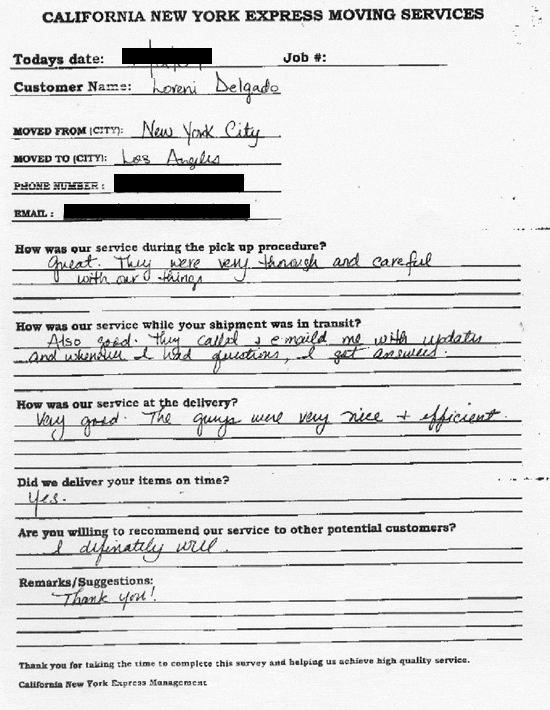 CALIFORNIA NEW YORK EXPRESS MOVING SERVICES
Todays date: Job #:
Customer Name: Loreni Delgado
MOVED FROM (CITY): New York City
MOVED TO (CITY): Los Angeles
PHONE NUMBER :
EMAIL :
How was our service during the pick up procedure?
Great. They were very through and careful
with our things
How was our service while your shipment was in transit?
Also good. They called & emaild me with updates
and whenever I had questions, I got answers.
How was our service at the delivery?
Very good. The guys were very nice + efficient.
Did we deliver your items on time?
Yes.
Are you willing to recommend our service to other potential customers?
I difinately will.
Remarks/Suggestions:
Thank you!
Thank you for taking the time to complete this survey and helping us achieve high quality service.
California New York Express Management